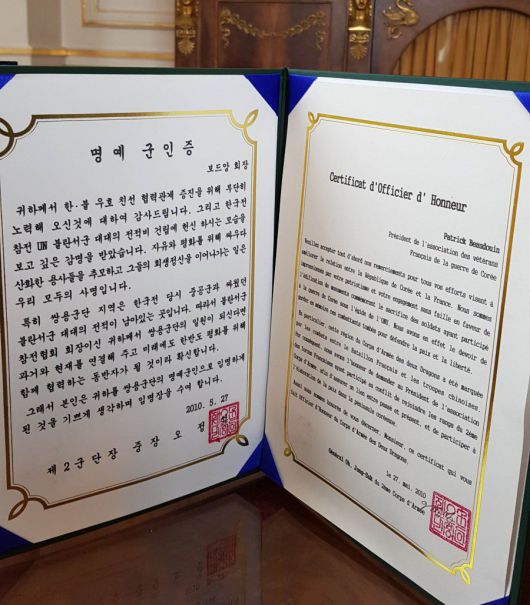 명예 군인증
보드앙 회장
귀하께서 한·불 우호 친선 협력관계 증진을 위해 부단히
노력해 오신것에 대하여 감사드립니다. 그리고 한국전
참전 UN 불란서군 대대의 전적비 건립에 헌신 하시는 모습을
보고 깊은 감명을 받았습니다. 자유와 평화를 위해 싸우다
산화한 용사들을 추모하고 그들의 희생정신을 이어나가는 일은
우리 모두의 사명입니다.
특히 쌍용군단 지역은 한국전 당시 중공군과 싸웠던
불란서군 대대의 전적이 남아있는 곳입니다. 따라서 불란서군
참전협회 회장이신 귀하께서 쌍용군단의 일원이 되신다면
과거와 현재를 연결해 주고 미래에도 한반도 평화를 위해
함께 협력하는 동반자가 될 것이라 확신합니다.
그래서 본인은 귀하를 쌍용군단의 명예군인으로 임명하게
된 것을 기쁘게 생각하며 임명장을 수여 합니다.
2010. 5. 27
제 2 군 단 장 중 장 오 정
Certificat d'Officier d' Honneur
Patrick Beaudouin
Président de l'association des vétérans
Français de la guerre de Corée
Veuillez accepter tout d'abord nos remerciements pour tous vos efforts visant à
améliorer la relation entre la République de Corée et la France. Nous sommes
par votre patriotisme et votre engagement sans faille en faveur de
l'édification de monument commémorant le sacrifice des soldats ayant participé
à la guerre de Corée sous l'égide de l'ONU. Nous avons en effet le devoir de
garder en mémoire ces combattants tombés pour défendre la paix et la liberté.
En particulier, cette région du Corps d'Armée des deux Dragons a été marquée
par les combats entre le Bataillon Français et les troupes chinoises.
Par conséquent, nous avons l'honneur de demander au Président de l'association
des Forces Françaises ayant participé au conflit de rejoindre les rangs du 2ème
Corps d'Armée, afin d'assurer le lien entre passé et présent, et de participer à
l'élaboration de la paix dans la péninsule coréenne.
Aussi nous sommes honorés de vous décerner, Monsieur, ce certificat qui vous
fait Officier d'Honneur du Corps d'Armée des Deux Dragons.
Le 27, mai, 2010
Général Oh, Jung-Suk du 2ème Corps d'Armée